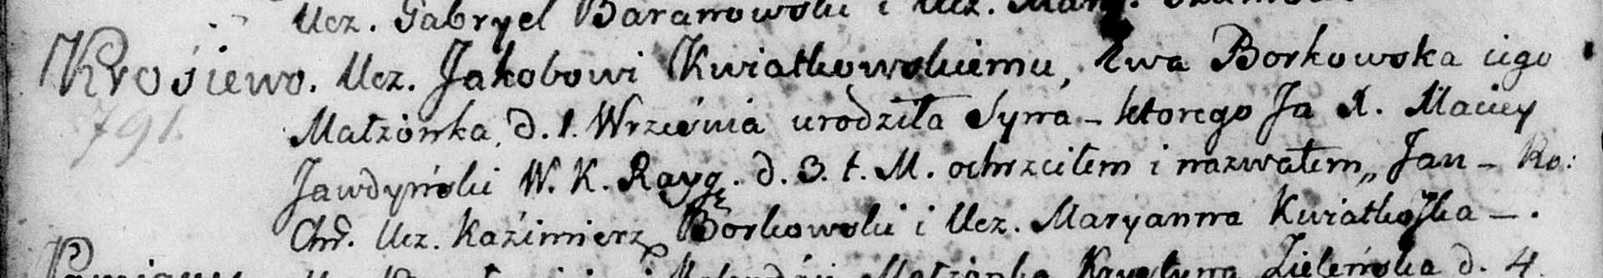 Ucz. Gabryel Baranowski i Ucz.
Krosiewo. Ucz. Jakobowi Kwiatkowskiemu, Ewa Borkowska iego
791. Małżonka, d. 1. Września urodziła Syna - ktorego Ja X. Maciey
Jawdyński W. K. Rayg. d. 3. t. M. ochrzciłem i nazwałem „ Jan - Ro:
Chr. Ucz. Kaźimierz Borkowski i Ucz. Maryanna Kwiatkoska - .
Małżonka Krystyna Zieleńska d. 4